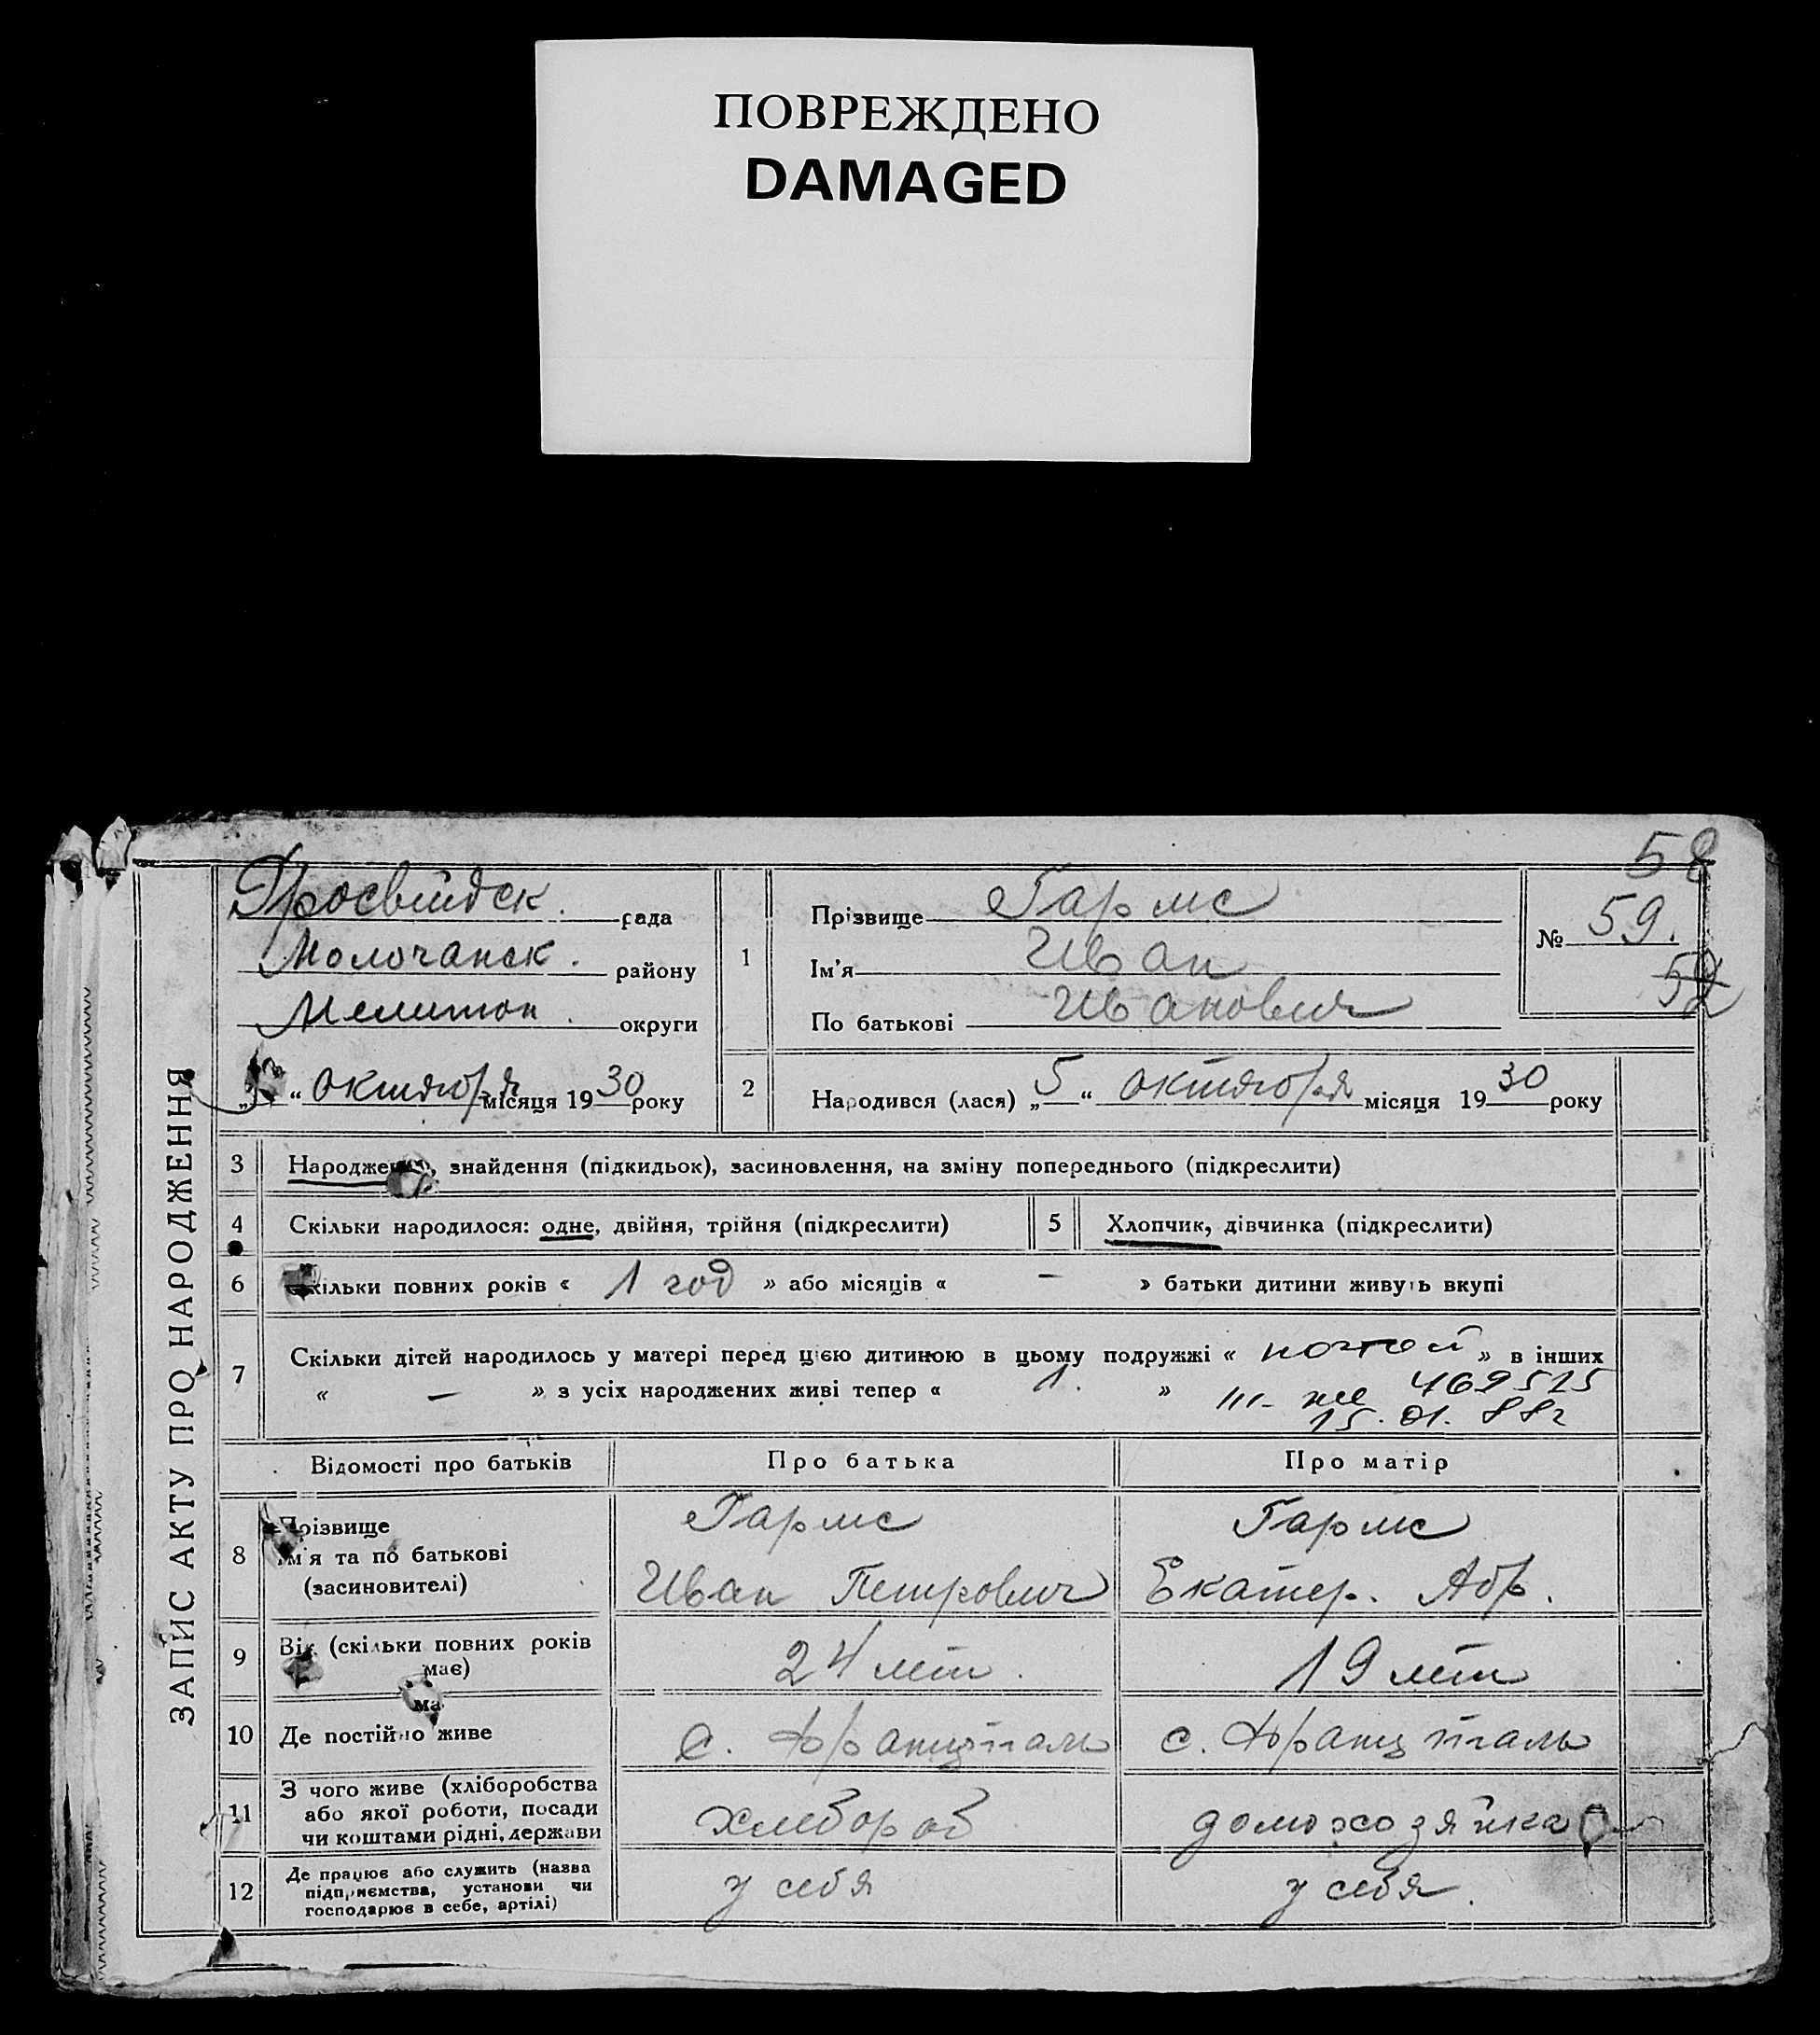 ПОВРЕЖДЕНО
DAMAGED
58
ЗАПИС АКТУ ПРО НАРОДЖЕННЯ
рада
Молочанск. району
Мелитоп. округи
„ “ октября місяця 1930 року
1
Прізвище Гармс
Ім’я Иван
По батькові Иванович
№ 59.
2
Народився (лася) „5“ октября місяця 1930 року
3 , знайдення (підкидьок), засиновлення, на зміну попереднього (підкреслити)
4 Скільки народилося: одне, двійня, трійня (підкреслити)
5 Хлопчик, дівчинка (підкреслити)
6 Скільки повних років « 1 год » або місяців « – » батьки дитини живуть вкупі
7 Скільки дітей народилось у матері перед цією дитиною в цьому подружжі « » в інших
« – » з усіх народжених живі тепер « 1. » 469525
15. 01. 88г
Відомості про батьків Про батька Про матір
8 Прізвище
Ім’я та по батькові
(засиновителі)
Гармс
Иван Петрович
Гармс
Екатер. Абр.
9 Вік (скільки повних років
має)
24 лет.
19 лет
10 Де постійно живе
с. Францталь
с. Францталь
11 З чого живе (хліборобства
або якої роботи, посади
чи коштами рідні, держави
хлебороб
домохозяйка
12 Де працює або служить (назва
підприємства, установи чи
господарює в себе, артілі)
у себя
у себя.